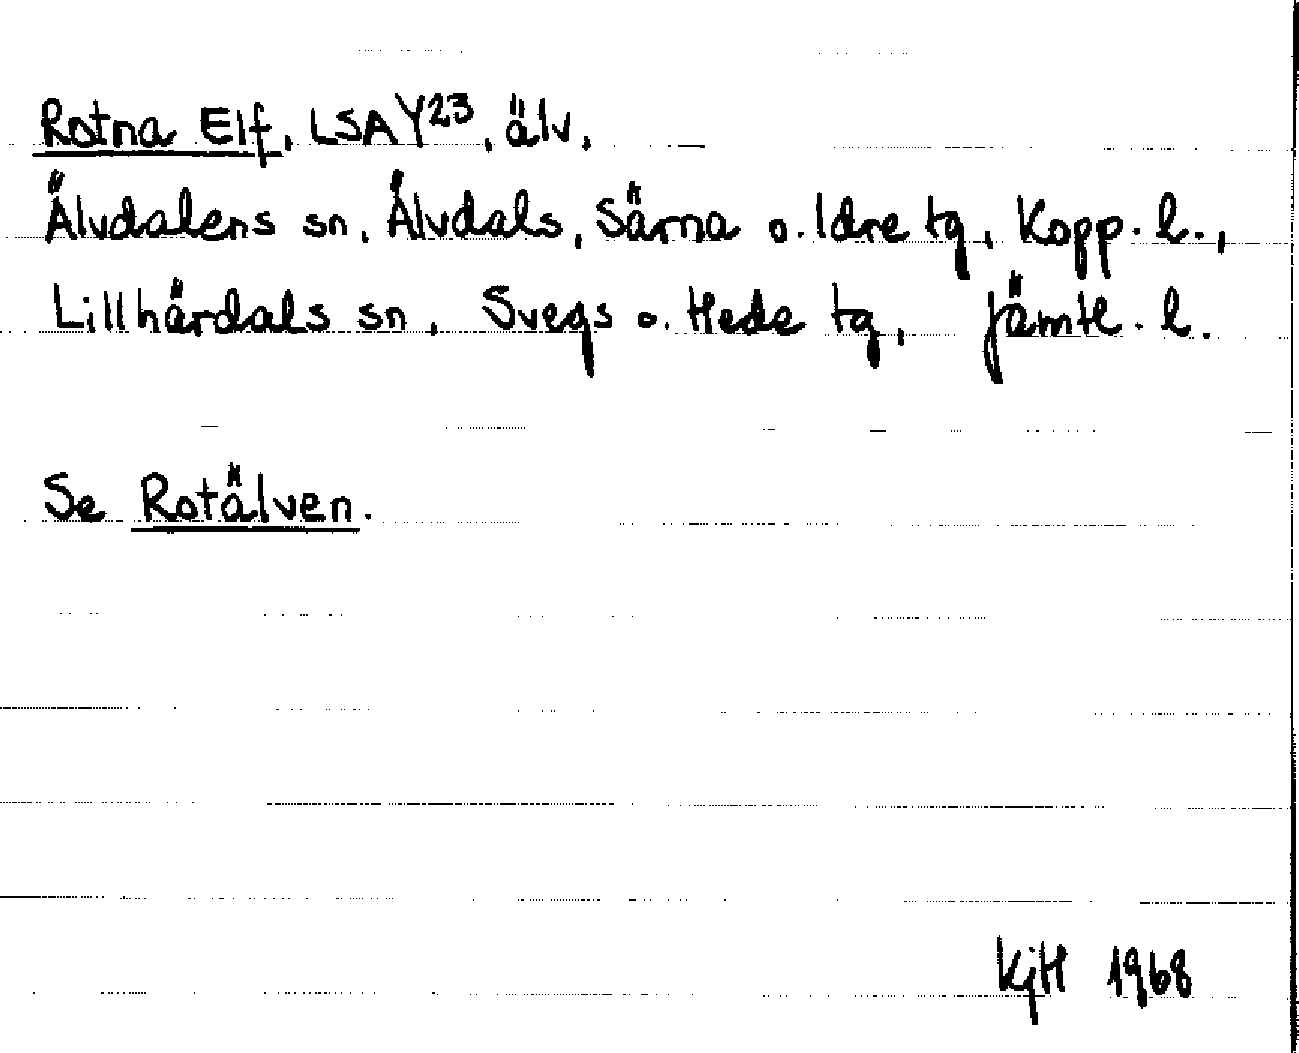 Rotna Elf, LSA Y23, älv,
Älvdalens sn, Älvdals, Särna o. Idre tg, Kopp. l.,
Lillhärdals sn, Svegs o. Hede tg, Jämtl. l.
Se Rotälven.
KjH 1968